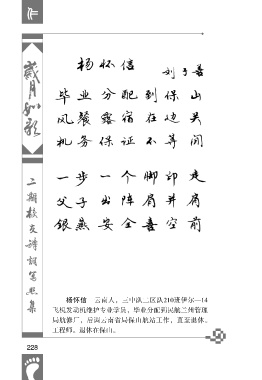 作
岁月如歌
二期校友诗词写照集
杨怀信
刘了善
毕业分配到保山
风餐露宿在边关
机务保证不等闲
一步一个脚印走
父子出阵肩并肩
银燕安全喜空前
杨怀信 云南人，三中队二区队210班伊尔—14
飞机发动机维护专业学员，毕业分配到民航兰州管理
局航修厂，后调云南省局保山航站工作，直至退休。
工程师。退休在保山。
228